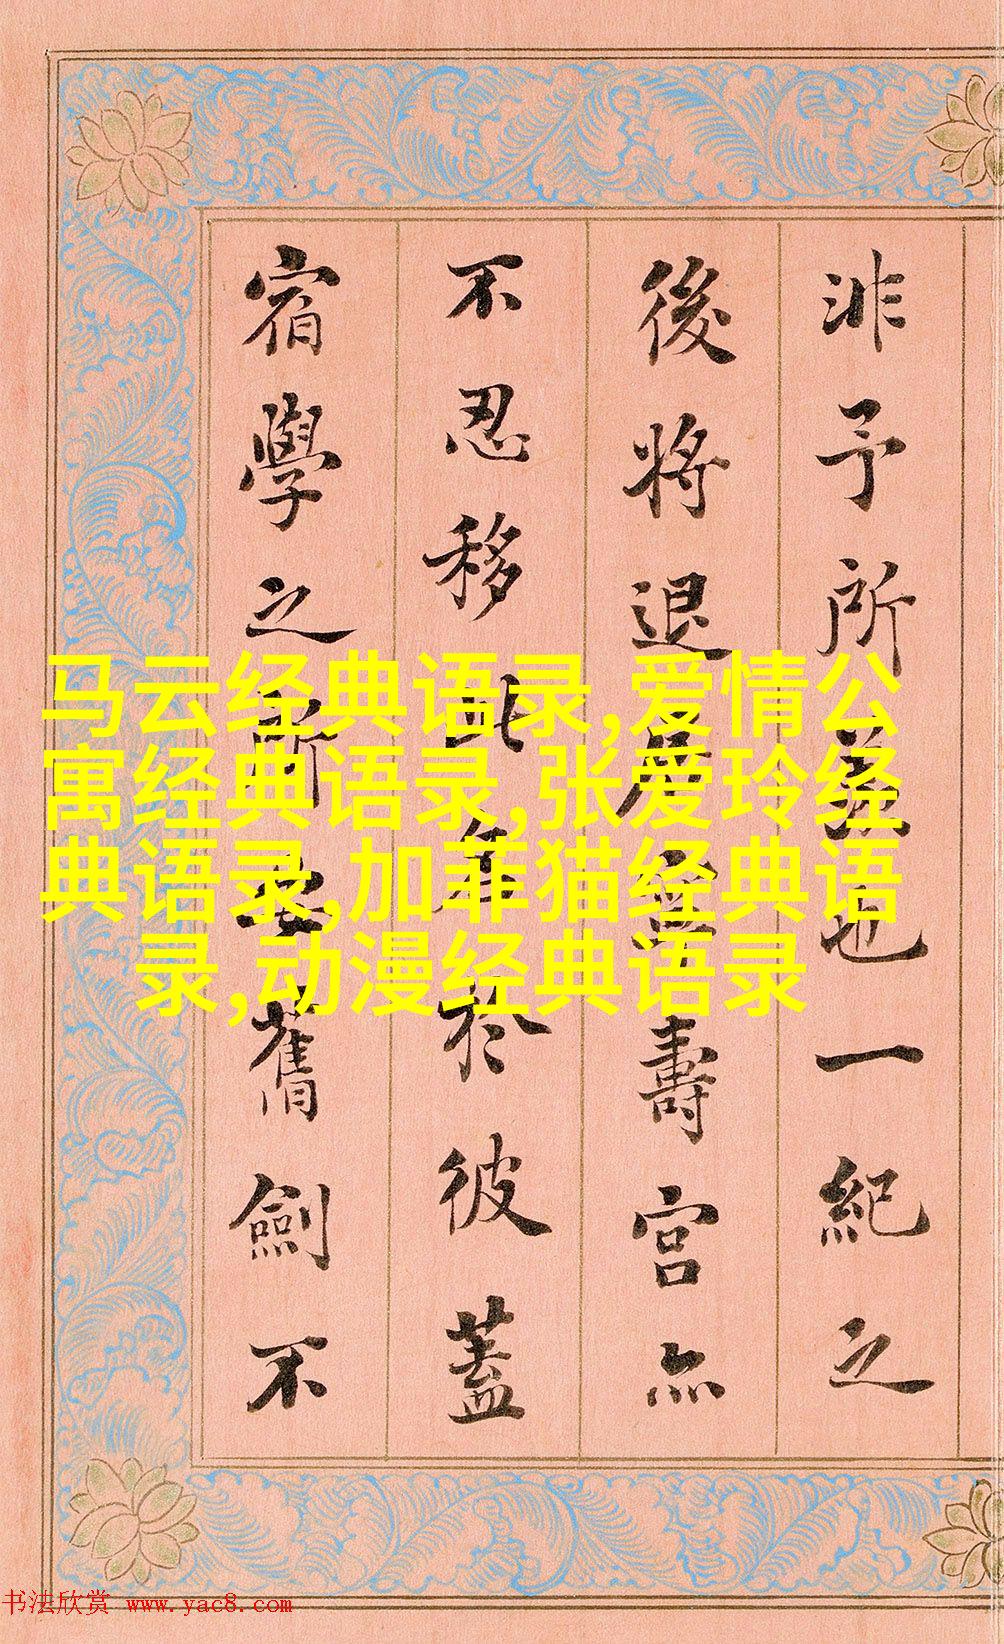 非予所也一紀之
後將退居寧壽宮亦
不忍移此於彼蓋
宿學之所安舊劍不
马云经典语录,爱情公
寓经典语录,张爱玲经
典语录,加菲猫经典语
录,动漫经典语录
书法欣赏 www.yac8.com